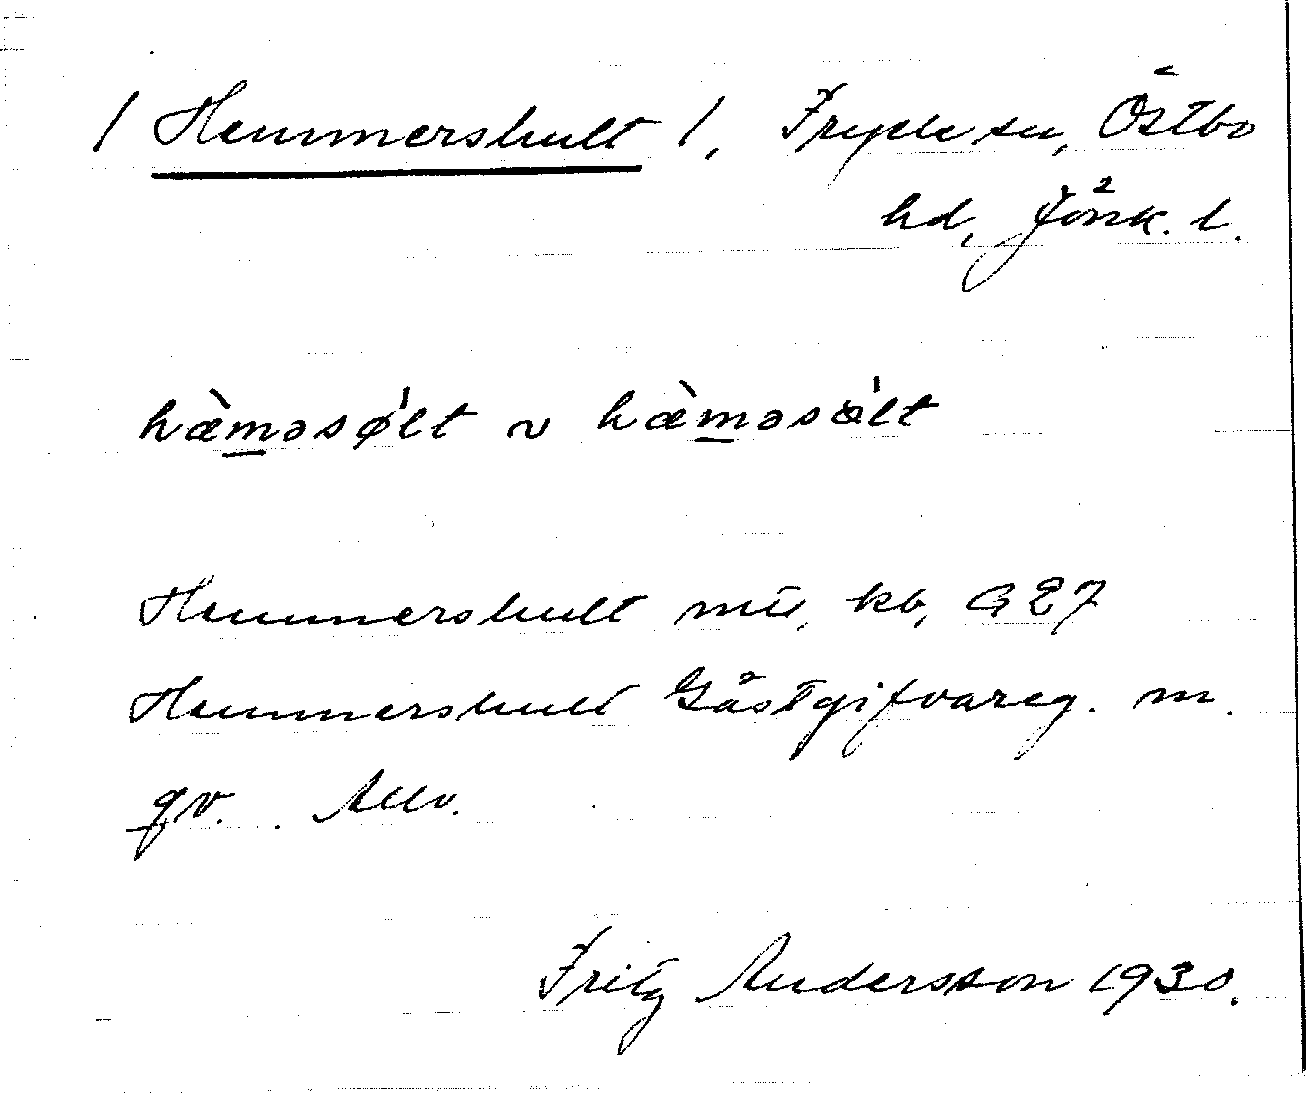 / Hemmershult /, Fryele sn, Östbo
hd, Jönk. l.
hæ̀mǝsǿlt ~ hæ̀mǝsœ́lt
Hemmershult kb, G 27
Hemmershult Gästgifvareg. m.
qv. Allv.
Fritz Andersson 1930.